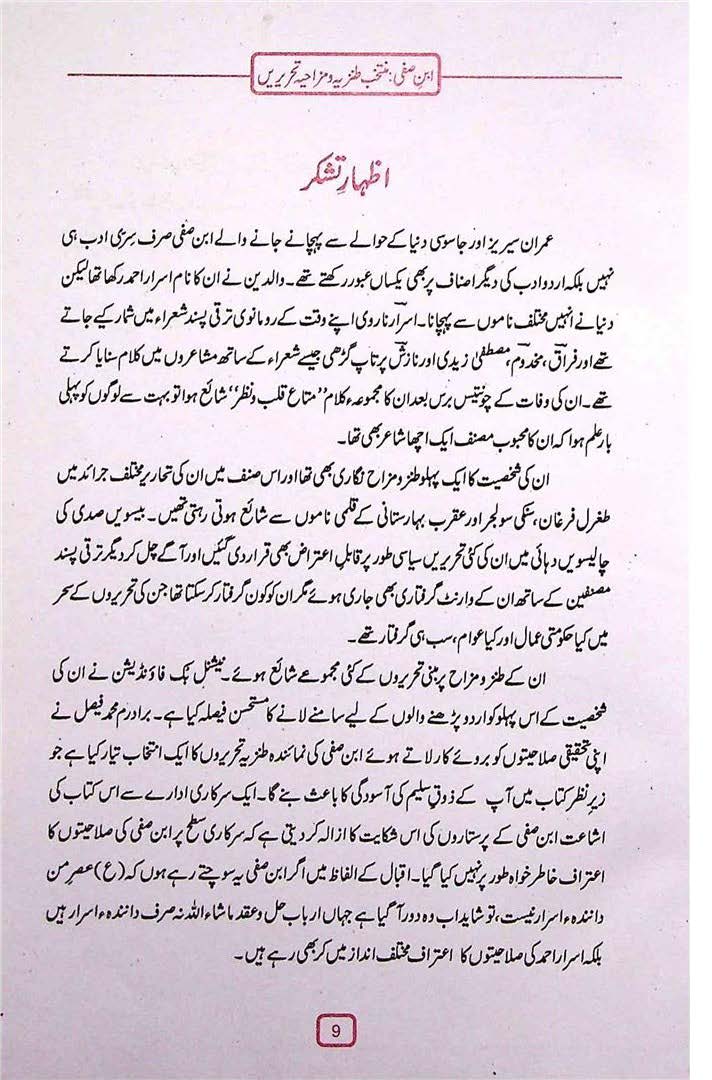 ابنِ صفی: منتخب طنزیہ و مزاحیہ تحریریں
اظہارِ تشکر
عمران سیریز اور جاسوسی دنیا کے حوالے سے پہچانے جانے والے ابن صفی صرف سِرّی ادب ہی
نہیں بلکہ اردو ادب کی دیگر اصناف پر بھی یکساں عبور رکھتے تھے۔ والدین نے ان کا نام اسرار احمد رکھا تھا لیکن
دنیا نے انہیں مختلف ناموں سے پہچانا۔ اسرارؔ ناروی اپنے وقت کے رومانوی ترقی پسند شعراء میں شمار کیے جاتے
تھے اور فراقؔ، مخدومؔ، مصطفیٰ زیدی اور نازشؔ پرتاپ گڑھی جیسے شعراء کے ساتھ مشاعروں میں کلام سنایا کرتے
تھے۔ ان کی وفات کے چونتیس برس بعد ان کا مجموعہء کلام ”متاع قلب و نظر“ شائع ہوا تو بہت سے لوگوں کو پہلی
بار علم ہوا کہ ان کا محبوب مصنف ایک اچھا شاعر بھی تھا۔
ان کی شخصیت کا ایک پہلو طنز و مزاح نگاری بھی تھا اور اس صنف میں ان کی تحاریر مختلف جرائد میں
طغرل فرغان، سنکی سولجر اور عقرب بہارستانی کے قلمی ناموں سے شائع ہوتی رہتی تھیں۔ بیسویں صدی کی
چالیسویں دہائی میں ان کی کئی تحریریں سیاسی طور پر قابلِ اعتراض بھی قرار دی گئیں اور آگے چل کر دیگر ترقی پسند
مصنفین کے ساتھ ان کے وارنٹ گرفتاری بھی جاری ہوئے مگر ان کو کون گرفتار کر سکتا تھا جن کی تحریروں کے سحر
میں کیا حکومتی عمال اور کیا عوام، سب ہی گرفتار تھے۔
ان کے طنز و مزاح پر مبنی تحریروں کے کئی مجموعے شائع ہوئے۔ نیشنل بک فاؤنڈیشن نے ان کی
شخصیت کے اس پہلو کو اردو پڑھنے والوں کے لیے سامنے لانے کا مستحسن فیصلہ کیا ہے۔ برادرم محمد فیصل نے
اپنی تحقیقی صلاحیتوں کو بروئے کار لاتے ہوئے ابن صفی کی نمائندہ طنزیہ تحریروں کا ایک انتخاب تیار کیا ہے جو
زیرِ نظر کتاب میں آپ کے ذوقِ سلیم کی آسودگی کا باعث بنے گا۔ ایک سرکاری ادارے سے اس کتاب کی
اشاعت ابن صفی کے پرستاروں کی اس شکایت کا ازالہ کر دیتی ہے کہ سرکاری سطح پر ابن صفی کی صلاحیتوں کا
اعتراف خاطر خواہ طور پر نہیں کیا گیا۔ اقبال کے الفاظ میں اگر ابن صفی یہ سوچتے رہے ہوں کہ (ع) عصرِ من
دانندہء اسرار نیست، تو شاید اب وہ دور آ گیا ہے جہاں ارباب حل و عقد ماشاءاللہ نہ صرف دانندہء اسرار ہیں
بلکہ اسرار احمد کی صلاحیتوں کا اعتراف مختلف انداز میں کر بھی رہے ہیں۔
9